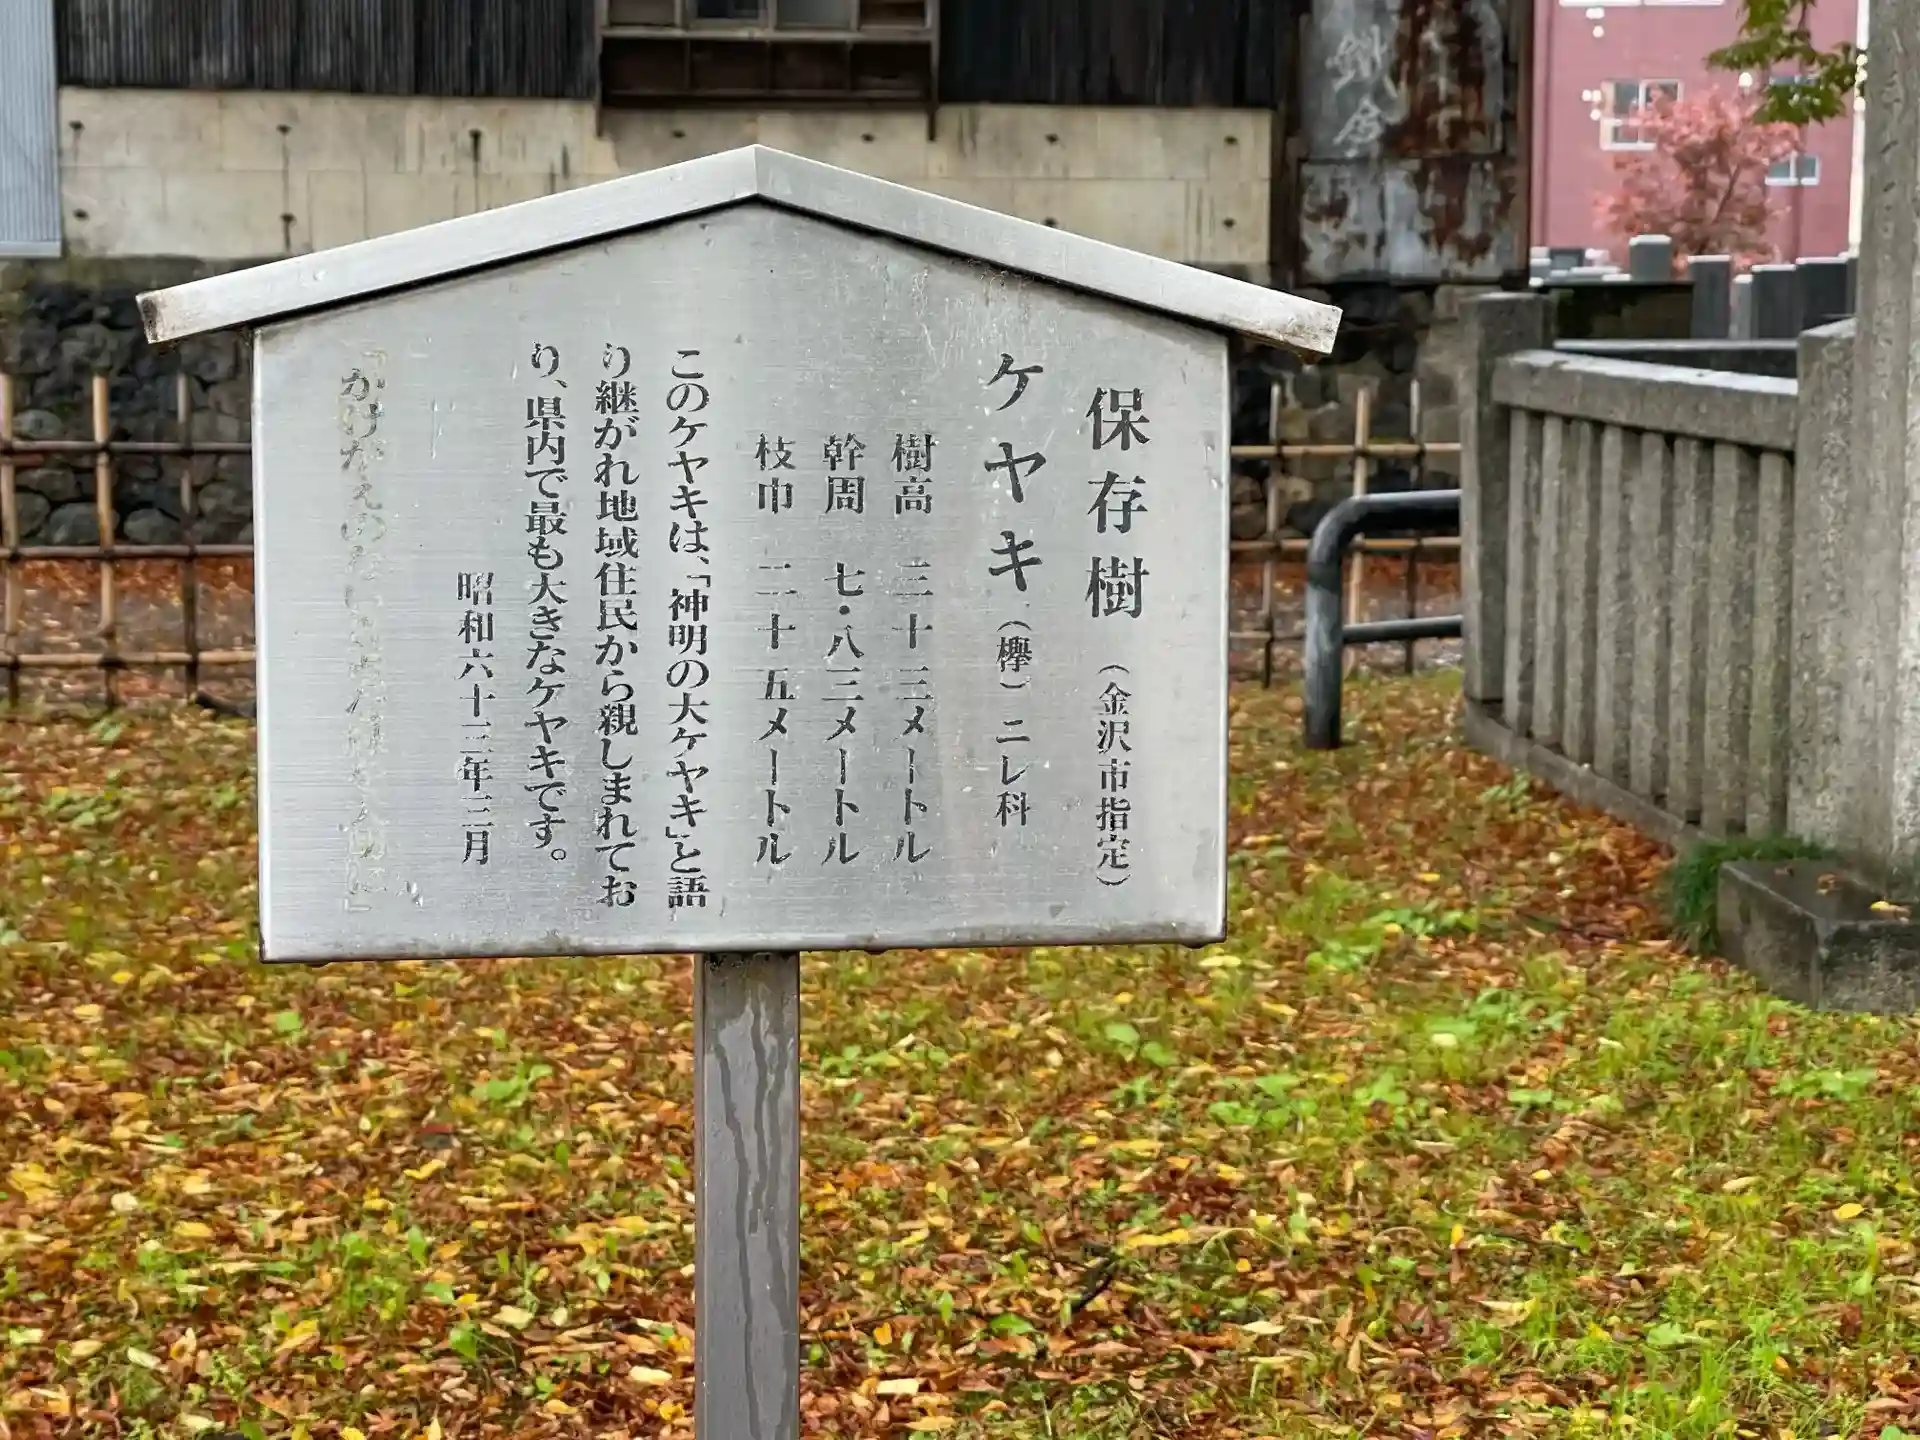 保存樹（金沢市指定）
ケヤキ（欅）ニレ科
樹高 三十三メートル
幹周 七・八三メートル
枝巾 二十五メートル
このケヤキは、「神明の大ケヤキ」と語
り継がれ地域住民から親しまれてお
り、県内で最も大きなケヤキです。
昭和六十三年三月
「かけがえのない